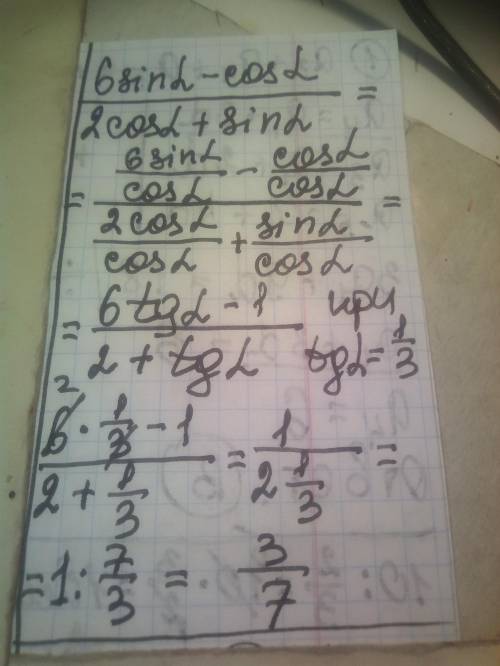 (6sinα - cosα)/(2cosα + sinα) =
= (6sinα/cosα - cosα/cosα)/(2cosα/cosα + sinα/cosα) =
= (6tgα - 1)/(2 + tgα) при tgα = 1/3
(6 · 1/3 - 1)/(2 + 1/3) = 1/(2 1/3) =
= 1 : 7/3 = 3/7